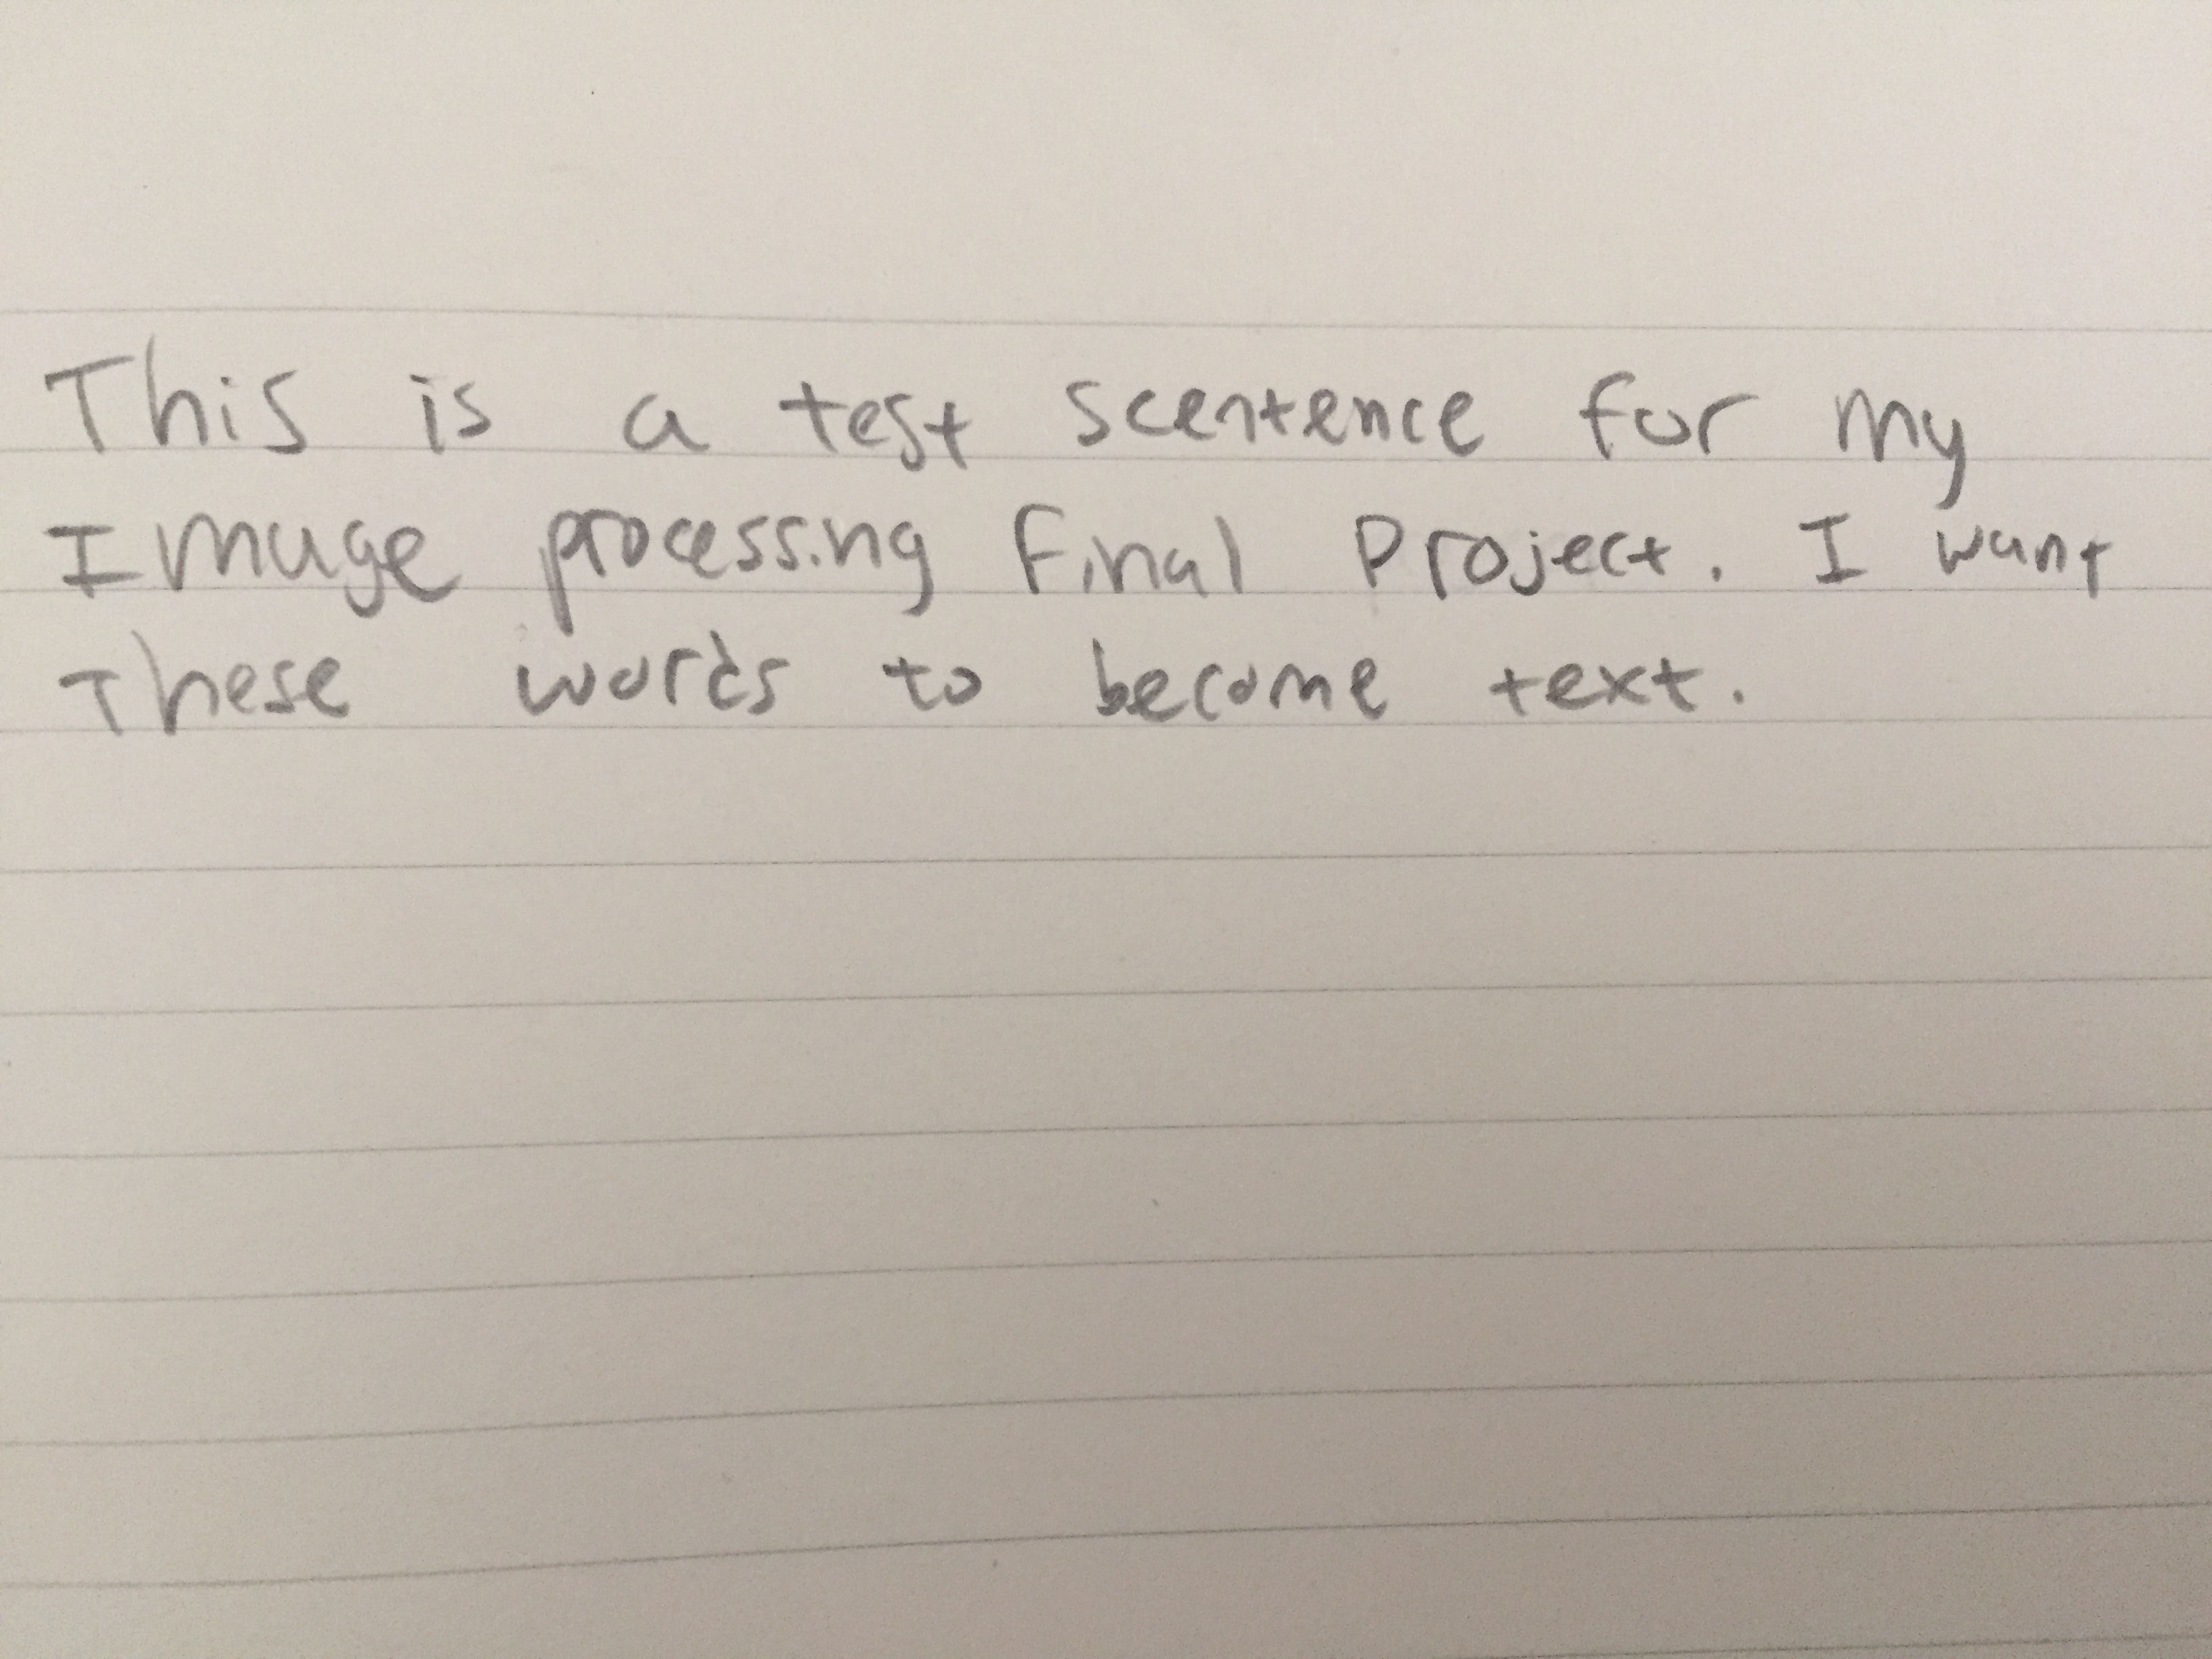 This is a test scentence for my
Image processing final project. I want
These words to become text.